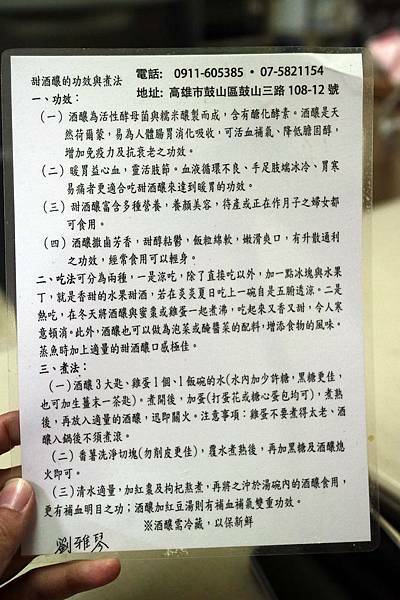 電話: 0911-605385 • 07-5821154
地址: 高雄市鼓山區鼓山三路 108-12 號
甜酒釀的功效與煮法
一、功效：
（一）酒釀為活性酵母菌與糯米釀製而成，含有醣化酵素。酒釀是天
然荷爾蒙，易為人體腸胃消化吸收，可活血補氣、降低膽固醇，
增加免疫力及抗衰老之功效。
（二）暖胃益心血，靈活肢節。血液循環不良、手足肢端冰冷、胃寒
易痛者更適合吃甜酒釀來達到暖胃的功效。
（三）甜酒釀富含多種營養，養顏美容，待產或正在作月子之婦女都
可食用。
（四）酒釀撒鹵芳香，甜醇粘鬱，飯粒綿軟，嫩滑爽口，有升散通利
之功效，經常食用可以輕身。
二、吃法可分為兩種，一是涼吃，除了直接吃以外，加一點冰塊與水果
丁，就是香甜的水果甜酒，若在炎炎夏日吃上一碗自是五腑透涼。二是
熱吃，在冬天將酒釀與蜜棗或雞蛋一起煮沸，吃起來又香又甜，令人寒
意頓消。此外，酒釀也可以做為泡菜或醃醬菜的配料，增添食物的風味。
蒸魚時加上適量的甜酒釀口感極佳。
三、煮法：
（一）酒釀3大匙、雞蛋1個、1飯碗的水（水內加少許糖，黑糖更佳，
也可加生薑末一茶匙）。煮開後，加蛋（打蛋花或糖心蛋包均可），煮熟
後，再放入適量的酒釀，迅即關火。注意事項：雞蛋不要煮得太老、酒
釀入鍋後不須煮滾。
（二）番薯洗淨切塊（勿削皮更佳），覆水煮熟後，再加黑糖及酒釀熄
火即可。
（三）清水適量，加紅棗及枸杞熬煮，再將之沖於湯碗內的酒釀食用，
更有補血明目之功；酒釀加紅豆湯則有補血補氣雙重功效。
※酒釀需冷藏，以保新鮮
劉雅琴